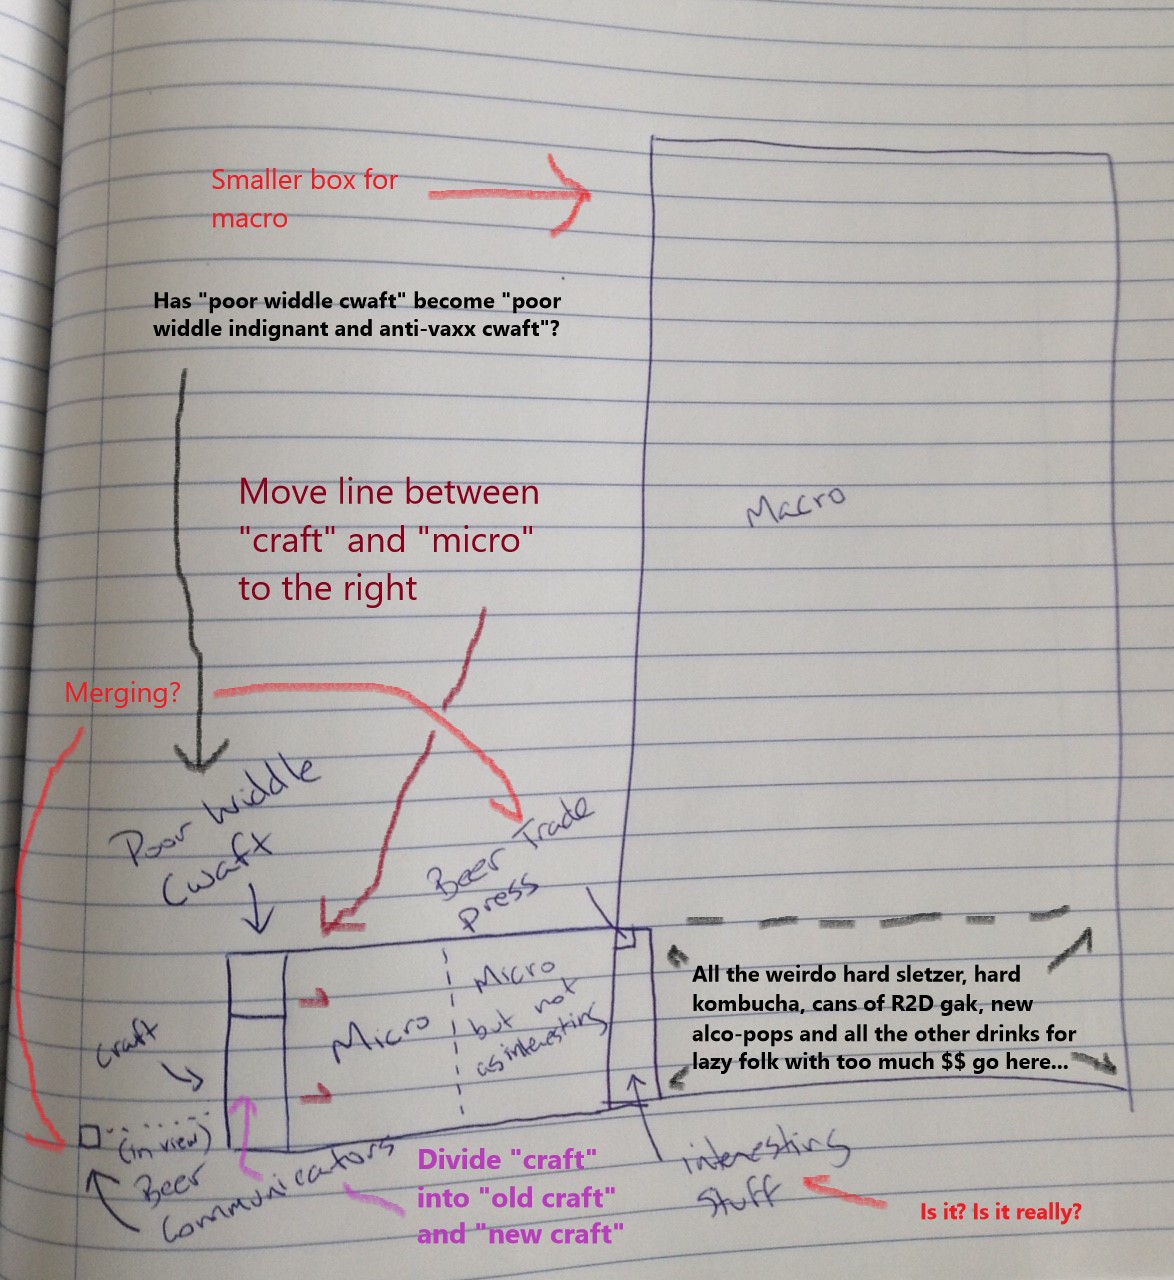 Smaller box for
macro
Has "poor widdle cwaft" become "poor
widdle indignant and anti-vaxx cwaft"?
Macro
Move line between
"craft" and "micro"
to the right
Merging?
Poor Widdle
Cwaft
Beer Trade
press
All the weirdo hard sletzer, hard
kombucha, cans of R2D gak, new
alco-pops and all the other drinks for
lazy folk with too much $$ go here...
craft
Micro
Micro
but not
as interesting
(in view)
Beer
Communicators
Divide "craft"
into "old craft"
and "new craft"
interesting
stuff
Is it? Is it really?